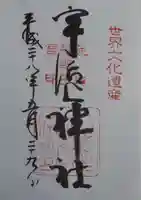 世界文化遺産
宇治神社
平成二十八年五月二十九日